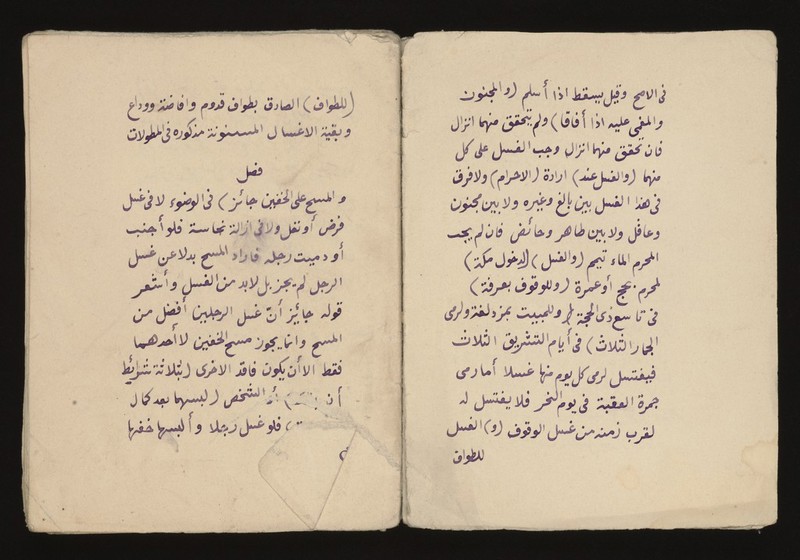 فى الاصح وقيل يسقط اذا أسلم (والمجنون
والمغمى عليه اذا أفاقا) ولم يتحقق منهما انزال
فان تحقق منهما انزال وجب الغسل على كل
منهما (والغسل عند) ارادة (الاحرام) ولا فرق
فى هذا الغسل بين بالغ وغيره ولا بين مجنون
وعاقل ولا بين طاهر وحائض فان لم يجد
المحرم الماء تيمم (والغسل) (لدخول مكة)
لمحرم بحج أو عمرة (وللوقوف بعرفة)
فى تاسع ذى الحجة (وللمبيت بمزدلفة ولرمى
الجمار الثلاث) فى أيام التشريق الثلاث
فيغتسل لرمى كل يوم منها غسلا أما رمى
جمرة العقبة فى يوم النحر فلا يغتسل له
لقرب زمنه من غسل الوقوف (و) الغسل
للطواف
(للطواف) الصادق بطواف قدوم وافاضة ووداع
وبقية الاغسال المسنونة مذكوره فى المطولات
فصل
والمسح على الخفين جائز) فى الوضوء لا فى غسل
فرض أو نفل ولا فى ازالة نجاسة فلو أجنب
أو دميت رجله فاراد المسح بدلا عن غسل
الرجل لم يجز بل لابد من الغسل وأشعر
قوله جائز أنّ غسل الرجلين أفضل من
المسح وانما يجوز مسح الخفين لا أحدهما
فقط الا أن يكون فاقد الاخرى (بثلاثة شرائط
أن الشخص (لبسهما بعد كمال
فلو غسل رجلا وألبسها خفها